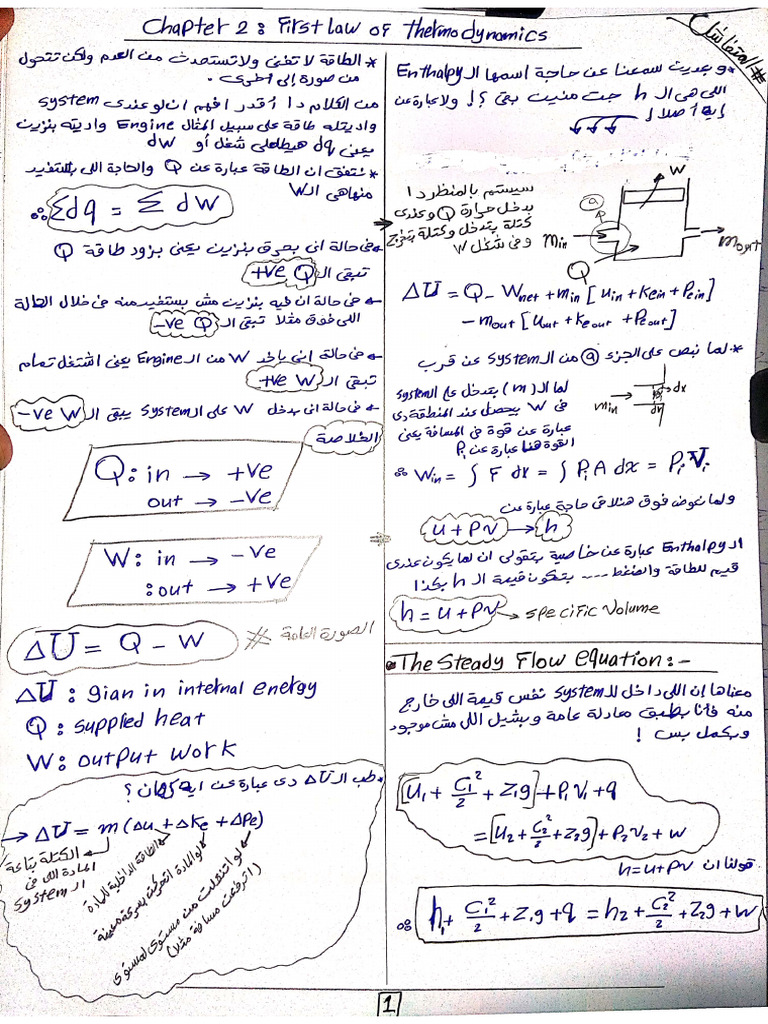 Chapter 2 : First law of Thermodynamics
#المتفاشل
* الطاقة لا تفنى ولا تستحدث من العدم ولكن تتحول
من صورة إلى اخرى .
من الكلام دا أقدر افهم ان لو عندى system
واديتله طاقة على سبيل المثال Engine واديته بنزين
يعنى dq هيطلعلى شغل أو dw
* نتفق ان الطاقة عبارة عن Q والحاجة اللى بتستفيد
منها هى الـ W
∴ Σdq = Σ dW
← فى حالة انى بحرق بنزين يعنى بزود طاقة Q
تبقى الـ Q +ve
← فى حالة ان فيه بنزين مش بستفيد منه فى خلال الحالة
اللى فوق مثلا تبقى الـ Q -ve
← فى حالة انى باخد W من الـ Engine يعنى اشتغل تمام
تبقى الـ W +ve
← فى حالة انى بدخل W على الـ System يبقى الـ W -ve
الخلاصة
Q : in → +ve
out → -ve
W : in → -ve
: out → +ve
ΔU = Q - W
الصورة العامة
ΔU : gian in internal energy
Q : supplied heat
W : output work
* طب الـ ΔU دى عبارة عن ايه كمان ؟
→ ΔU = m (Δu + Δke + ΔPe)
الكتلة بتاعة
المادة اللى فى
الـ System
الطاقة الداخلية للمادة
لو المادة اتحركت بسرعة معينة
لو انتقلت من مستوى لمستوى
(اترفعت مسافة مثلا)
* وبعدين سمعنا عن حاجة اسمها الـ Enthalpy
اللى هى الـ h جت منين بقى ؟! ولا عبارة عن
إيه أصلا !
سيستم بالمنظر دا
بدخل حرارة Q وعندى
كتلة بتدخل وكتلة بتخرج
وفى شغل W
W
a
min
mout
Q
ΔU = Q - Wnet + min [uin + kein + Pein]
- mout [uout + keout + Peout]
* لما نبص على الجزء a من الـ System عن قرب
لما الـ (m) بتدخل على الـ System
فى W بيحصل عند المنطقة دى
عبارة عن قوة فى المسافة يعنى
القوة هنا عبارة عن P₁
min
dx
∴ Win = ∫ F dx = ∫ P₁ A dx = P₁ V₁
ولما نعوض فوق هنلاقى حاجة عبارة عن
u + Pv → h
الـ Enthalpy عبارة عن خاصية بتقولى ان لما يكون عندى
قيم للطاقة والضغط .... بتكون قيمة الـ h بكذا
h = u + Pv → specific Volume
• The Steady Flow equation : -
معناها إن اللى داخل للـ System نفس قيمة اللى خارج
منه فأنا بطبق معادلة عامة وبشيل اللى مش موجود
وبكمل بس !
[u₁ + C₁²/2 + Z₁g] + P₁v₁ + q
= [u₂ + C₂²/2 + Z₂g] + P₂v₂ + w
قولنا ان h = u + Pv
∴ h₁ + C₁²/2 + Z₁g + q = h₂ + C₂²/2 + Z₂g + w
1